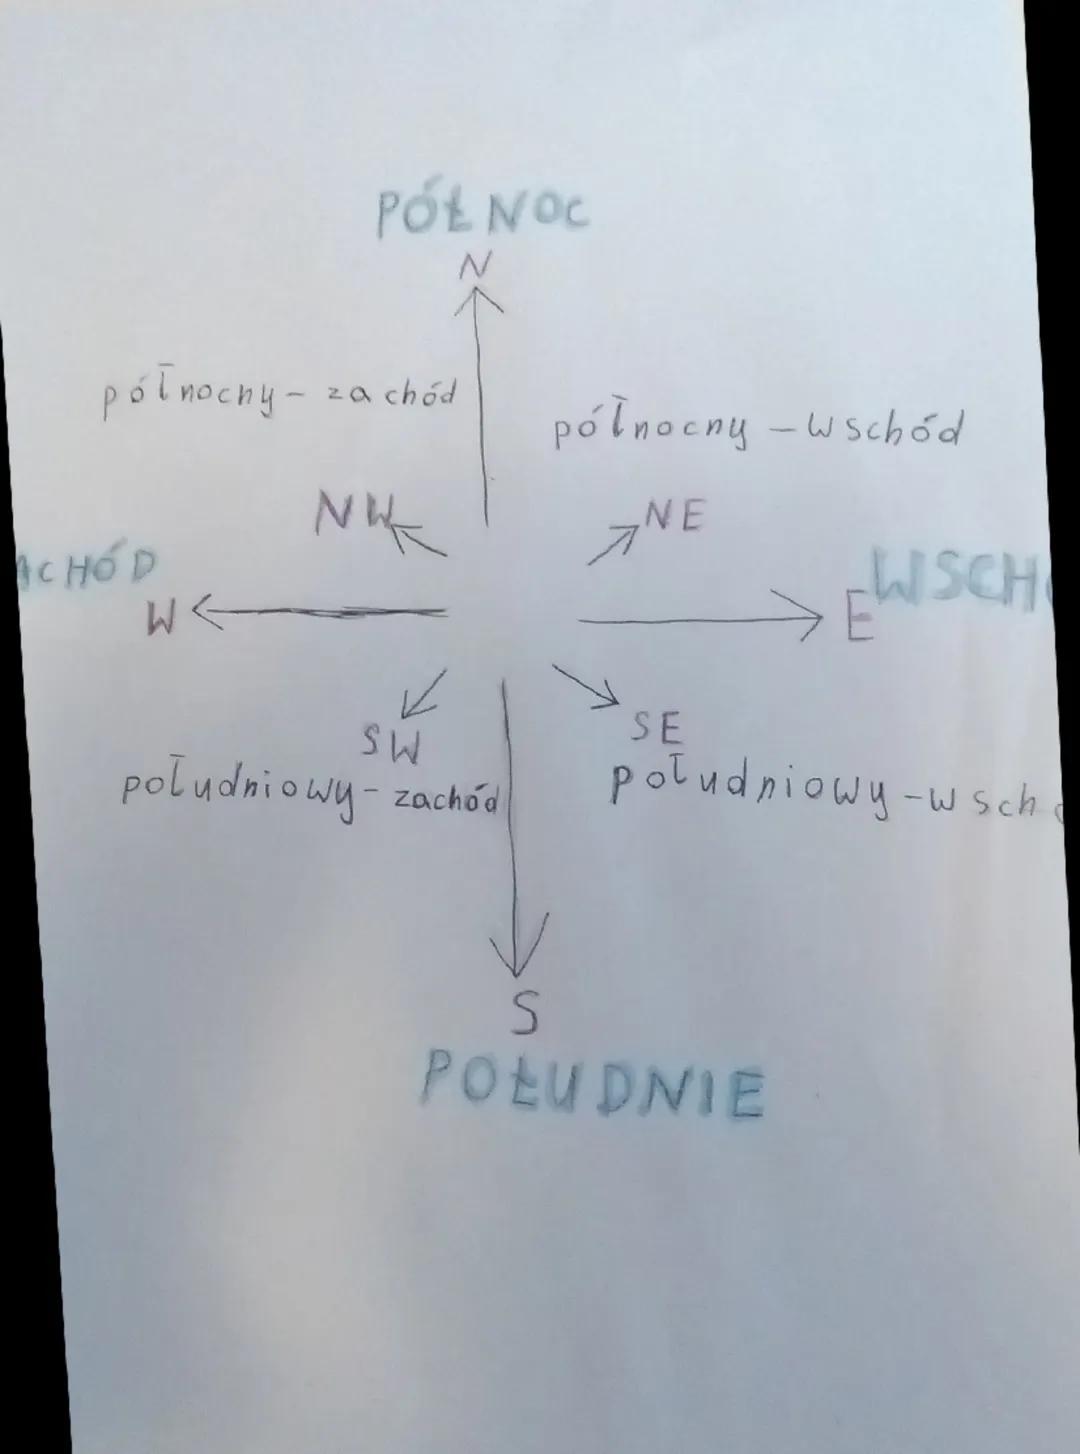 PÓŁNOC
N
północny - zachód
północny - wschód
NW
NE
ACHÓD
WSCH
W
E
SW
SE
południowy - zachód
południowy - wsch
S
POŁUDNIE